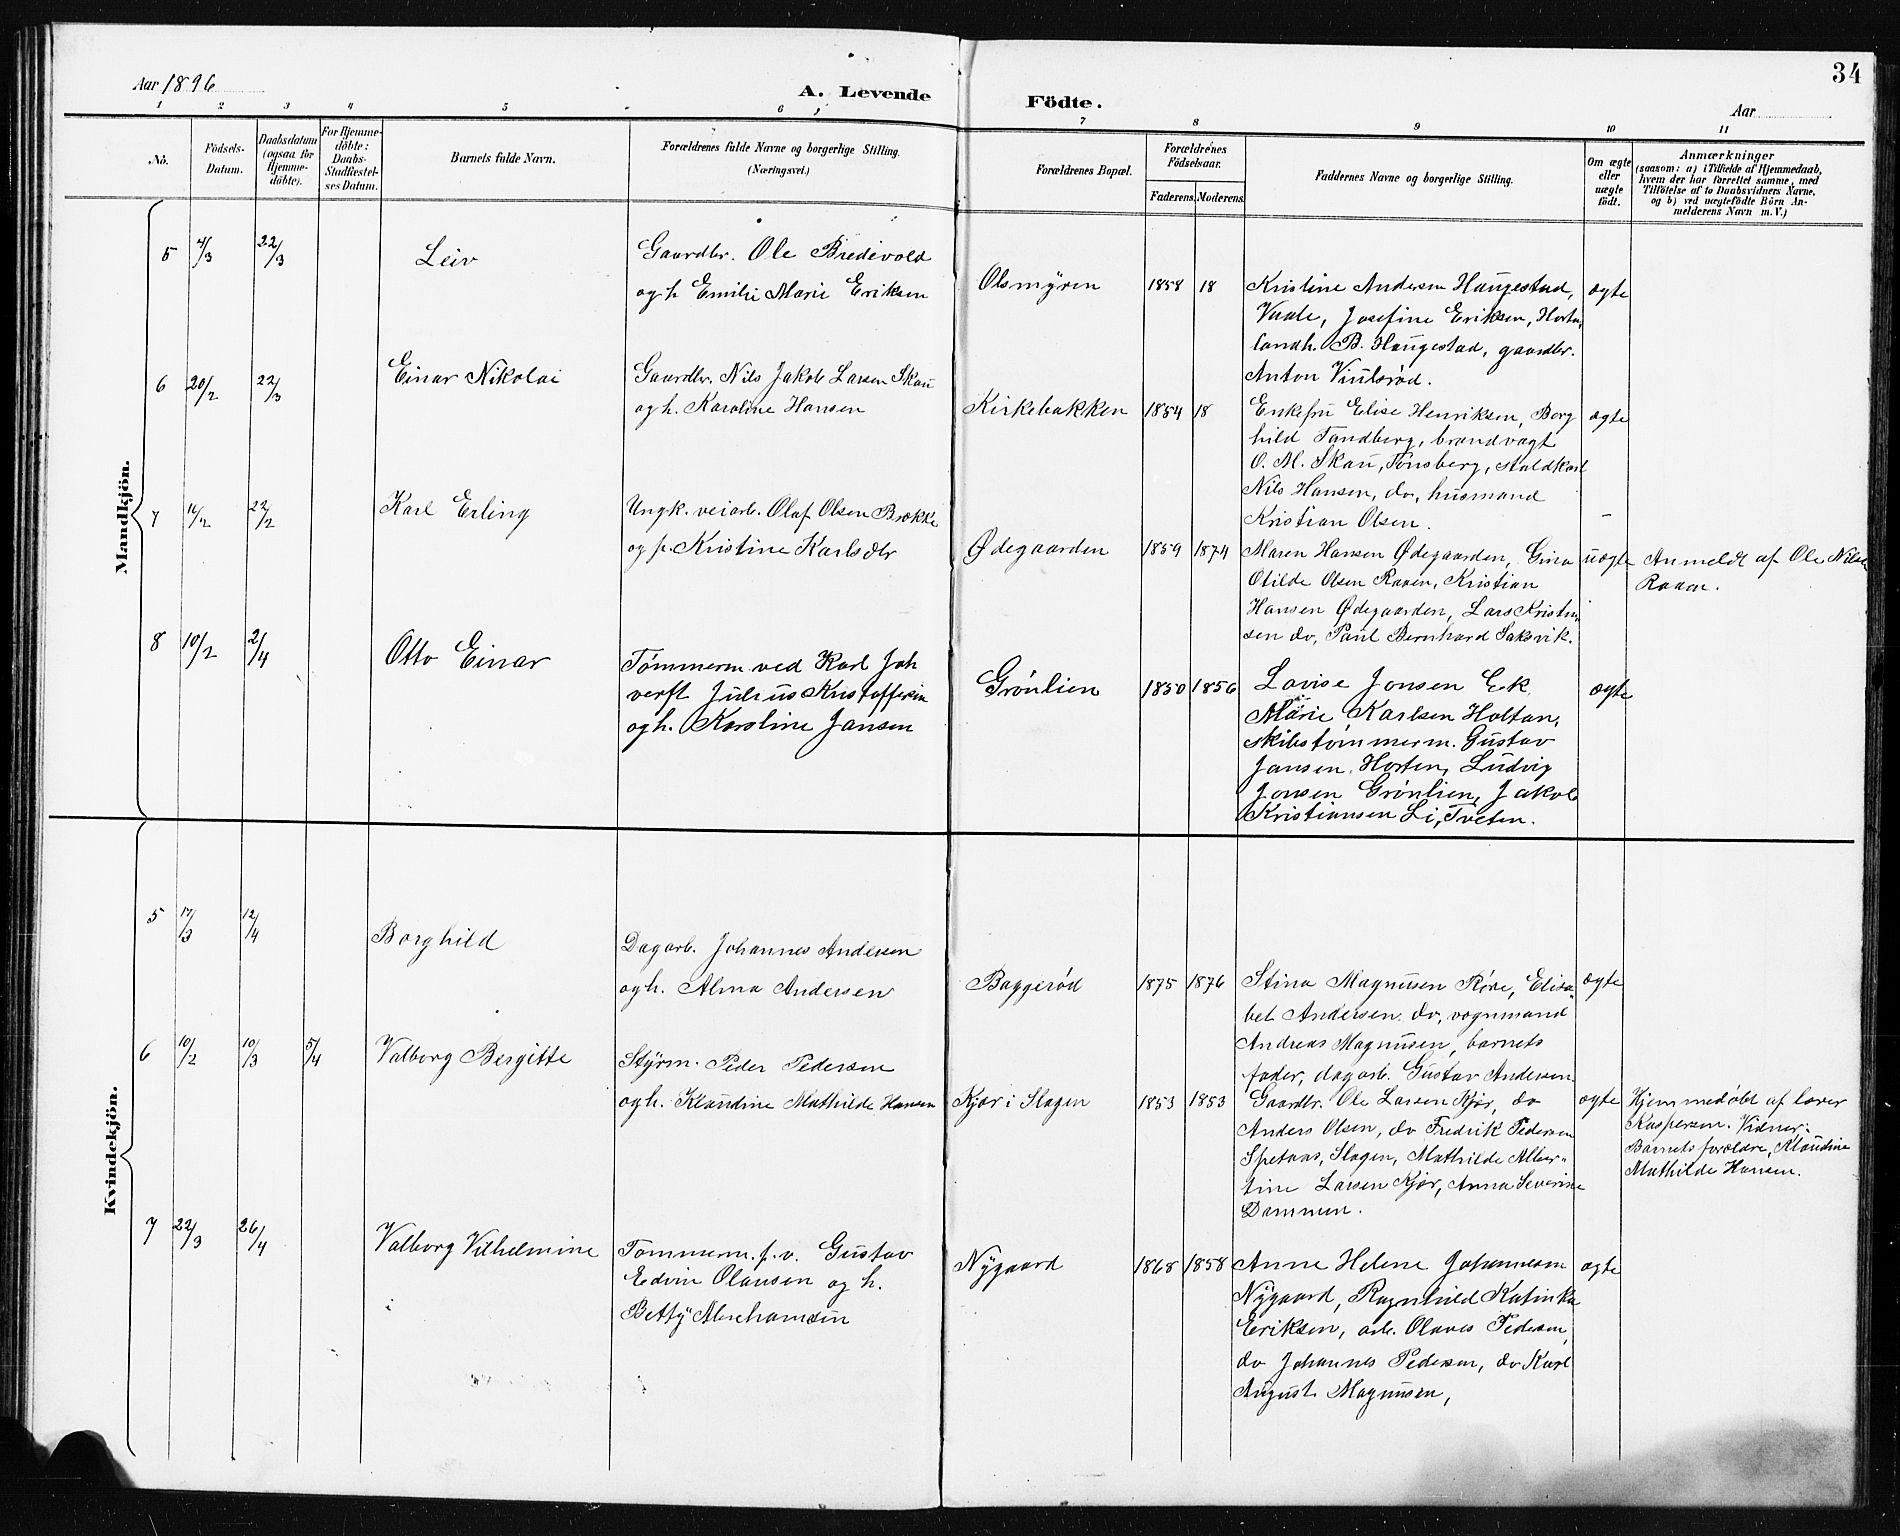 34
Aar 1896
A. Levende Födte.
Aar
1 2 3 4 5 6 7 8 9 10 11
No.
Födsels-Datum.
Daabsdatum (ogsaa for Hjemme-döbte).
For Hjemme-döbte: Daabs-Stadfæstel-ses Datum.
Barnets fulde Navn.
Forældrenes fulde Navne og borgerlige Stilling. (Næringsvei.)
Forældrenes Bopæl.
Forældrenes Födselsaar.
Faderens. Moderens.
Faddernes Navne og borgerlige Stilling.
Om ægte eller uægte födt.
Anmærkninger
(saasom: a) i Tilfælde af Hjemmedaab,
hvem der har forrettet samme, med
Tilföielse af to Daabsvidners Navne,
og b) ved uægtefödte Börn An-
melderens Navn m. V.)
Mandkjön.
5 4/3 22/3 Leiv
Gaardbr. Ole Bredevold
og h. Emilie Marie Eriksen
Olsmyren 1858 18
Kristine Andersen Haugestad,
Vaale, Josefine Eriksen, Horten,
landh. B. Haugestad, gaardbr.
Anton Viulsrød.
ægte
6 20/2 22/3 Einar Nikolai
Gaardbr. Nils Jakob Larsen Skau
og h. Karoline Hansen
Kirkebakken 1854 18
Enkefru Elise Henriksen, Borg
hild Tandberg, brandvagt
O. M. Skau, Tønsberg, staldkarl
Nils Hansen, do, husmand
Kristian Olsen.
ægte
7 16/2 22/2 Karl Erling
Ungk. veiarb. Olaf Olsen Brække
og p. Kristine Karlsdtr
Ødegaarden 1859 1874
Maren Hansen Ødegaarden, Gina
Otilde Olsen Raaen, Kristian
Hansen Ødegaarden, Lars Kristian
sen do, Paul Bernhard Saksvik.
uægte
Anmeldt af Ole Nilsen
Raaen.
8 10/2 2/4 Otto Einar
Tømmerm ved Karl Joh
verft Julius Kristoffersen
og h. Karoline Jansen
Grønlien 1850 1856
Lovise Jonsen Ek,
Marie Karlsen Holtan,
skibstømmerm. Gustav
Jansen, Horten, Ludvig
Jonsen Grønlien, Jakob
Kristiansen Li, Tveten.
ægte
Kvindekjön.
5 17/3 12/4 Borghild
Dagarb. Johannes Andersen
og h. Alma Andersen
Baggerød 1875 1876
Stina Magnusen Røre, Elisa-
bet Andersen do, vognmand
Andreas Magnusen, barnets
fader, dagarb. Gustav Andersen.
ægte
6 10/2 10/3 5/4 Valborg Bergitte
Styrm. Peder Pedersen
og h. Klaudine Mathilde Hansen
Kjær i Slagen 1853 1853
Gaardbr. Ole Larsen Kjør, do
Anders Olsen, do Fredrik Pedersen
Spetaas, Slagen, Mathilde Alber-
tine Larsen Kjør, Anna Severine
Dammen.
ægte
Hjemmedøbt af lærer
Kaspersen. Vidner:
Barnets forældre, Klaudine
Mathilde Hansen.
7 22/3 26/4 Valborg Vilhelmine
Tømmerm. p. v. Gustav
Edvin Olausen og h.
Betty Abrahamsen
Nygaard 1868 1858
Anne Helene Johannesen
Nygaard, Ragnhild Katinka
Eriksen, arb. Olaves Pedersen,
do Johannes Pedersen, do Karl
August Magnusen,
ægte